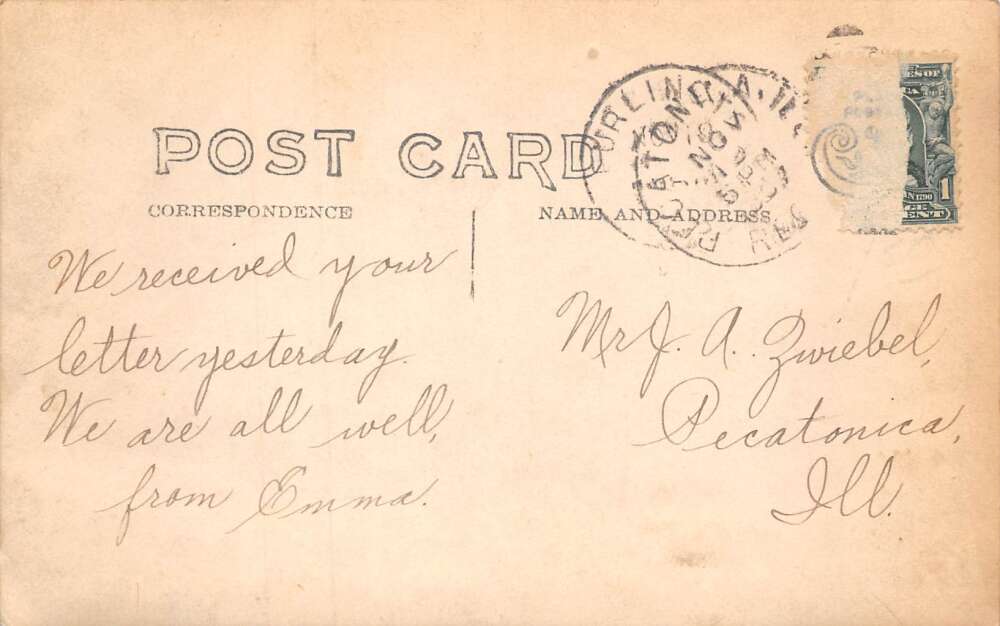 POST CARD
CORRESPONDENCE
NAME AND ADDRESS
We received your
letter yesterday.
We are all well,
from Emma.
Mr J. A. Zwiebel,
Pecatonica,
Ill.
1